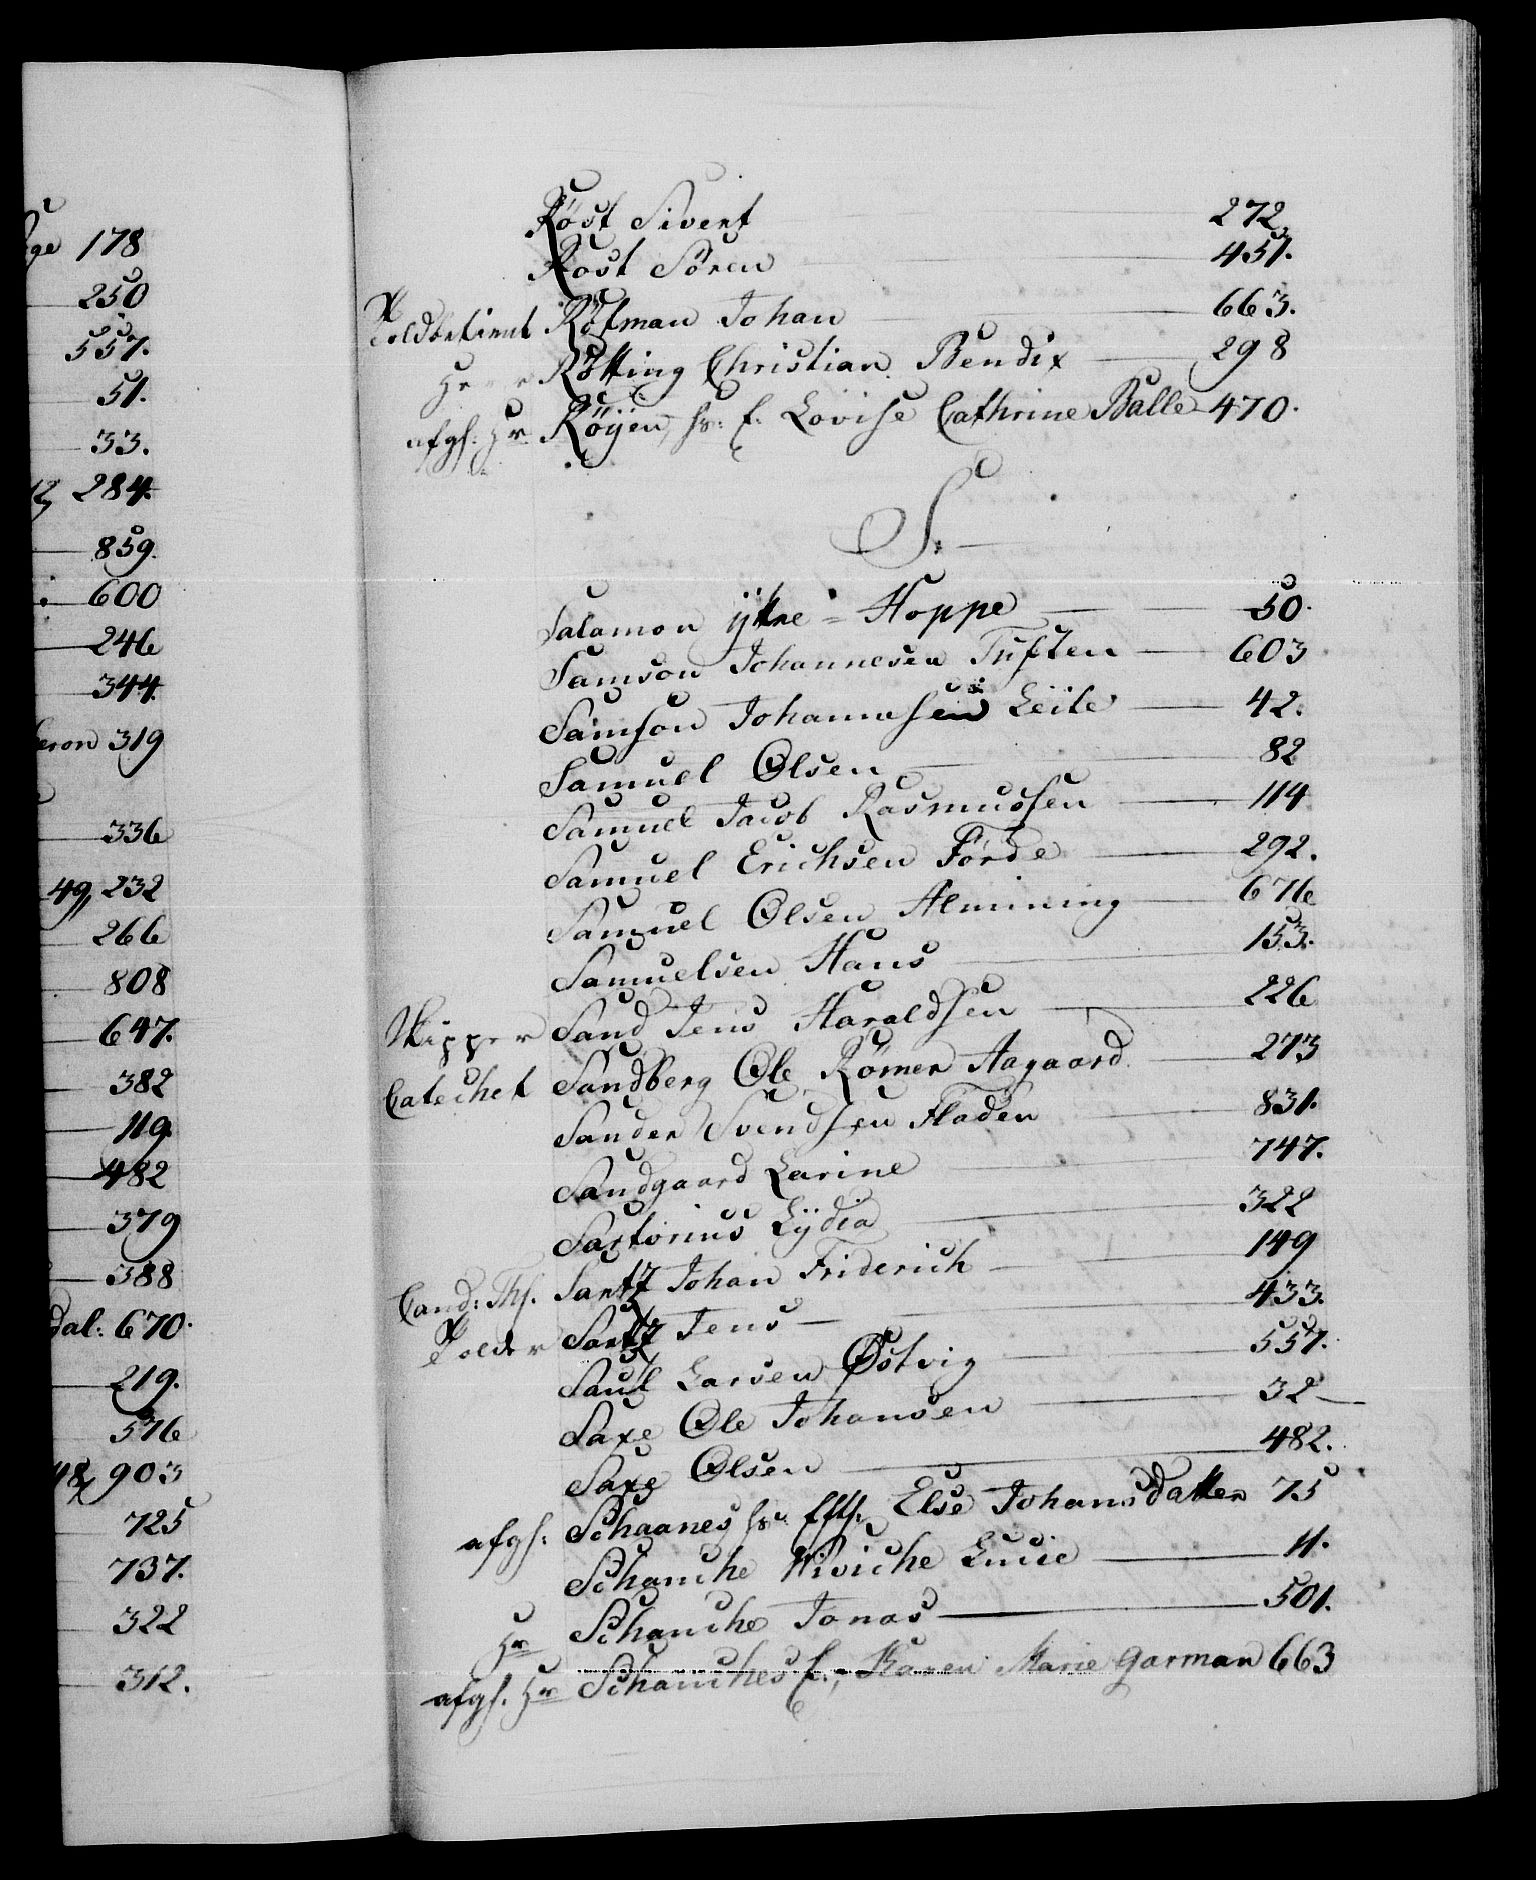 ge 178
250
557.
51.
33.
284.
859.
600
246
344.
eron 319
336
49, 232
266
808
647.
382
119.
482
379
388
dal: 670.
219.
576
48, 903
725
737.
322
312.
Röst Sivert 272.
Rost Sören 457.
Toldbetient Rötman Johan 663.
Herr Rötting Christian Bendix 298
afgh: Hr Röyen, hs: E. Lovise Cathrine Balle 470.
S.
Salamon ÿtre = Hoppe 50.
Samson Johannesen Tuften 603
Samson Johannesen Leite 42.
Samuel Olsen 82
Samuel Jacob Rasmussen 114
Samuel Erichsen Förde 292.
Samuel Olsen Almining 676
Samuelsen Hans 153.
Skipper Sand Jens Haraldsen 226
Catechet Sandberg Ole Römer Aagaard 273
Sander Svendsen Fladen 831.
Sandgaard Larine 747.
Sartorius Lÿdia 322
Cand: Th. Sartz Johan Friderich 149
Tolder Sartz Jens 433.
Saul Larsen Østvig 557.
Saxe Ole Johansen 32
Saxe Olsen 482.
afgh: Schaanes hs: Efth: Else Johansdatter 75
Schanche Wiviche Lucie 11.
Hr Schanche Jonas 501.
afgh. Hr Schanches E., Karen Marie Garman 663